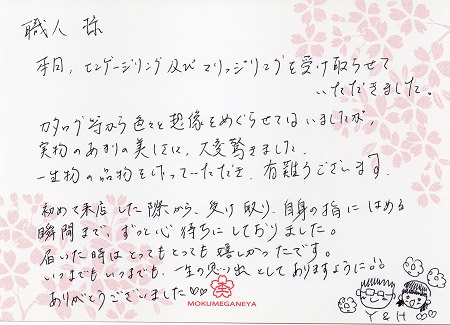 職人 様
本日、エンゲージリング及びマリッジリングを受け取らせて
いただきました。
カタログ等から色々と想像をめぐらせてはいましたが、
実物のあまりの美しさに、大変驚きました。
一生物の品物を作っていただき、有難うございます。
初めて来店した際から、受け取り、自身の指にはめる
瞬間まで、ずっと心待ちにしておりました。
届いた時はとってもとっても嬉しかったです。
いつまでもいつまでも、一生の思い出としてありますように
ありがとうございました♡♡
MOKUMEGANEYA
Y & H